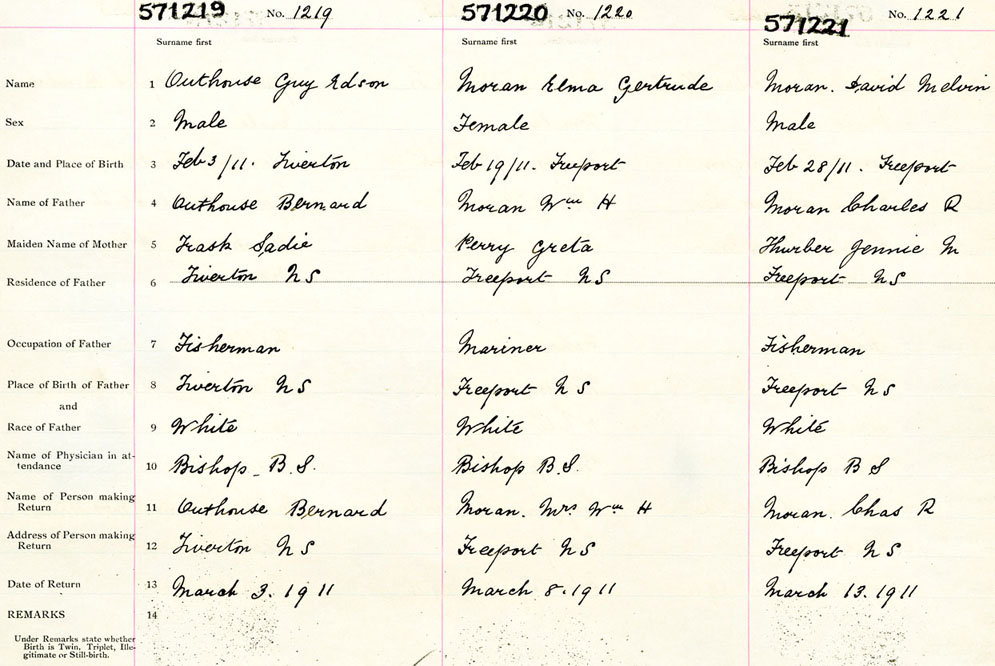 571219 No. 1219 571220 No. 1220 571221 No. 1221
Surname first Surname first Surname first
Name 1 Outhouse Guy Edson Moran Elma Gertrude Moran. David Melvin
Sex 2 Male Female Male
Date and Place of Birth 3 Feb 3/11. Tiverton Feb 19/11. Freeport Feb 28/11. Freeport
Name of Father 4 Outhouse Bernard Moran Wm H Moran Charles R
Maiden Name of Mother 5 Trask Sadie Perry Greta Thurber Jennie M
Residence of Father 6 Tiverton NS Freeport NS Freeport NS
Occupation of Father 7 Fisherman Mariner Fisherman
Place of Birth of Father 8 Tiverton NS Freeport NS Freeport NS
and
Race of Father 9 White White White
Name of Physician in at-
tendance 10 Bishop - B.S. Bishop B.S. Bishop B S
Name of Person making
Return 11 Outhouse Bernard Moran. Mrs Wm H Moran. Chas R
Address of Person making
Return 12 Tiverton NS Freeport NS Freeport NS
Date of Return 13 March 3. 1911 March 8. 1911 March 13. 1911
REMARKS 14
Under Remarks state whether
Birth is Twin, Triplet, Ille-
gitimate or Still-birth.